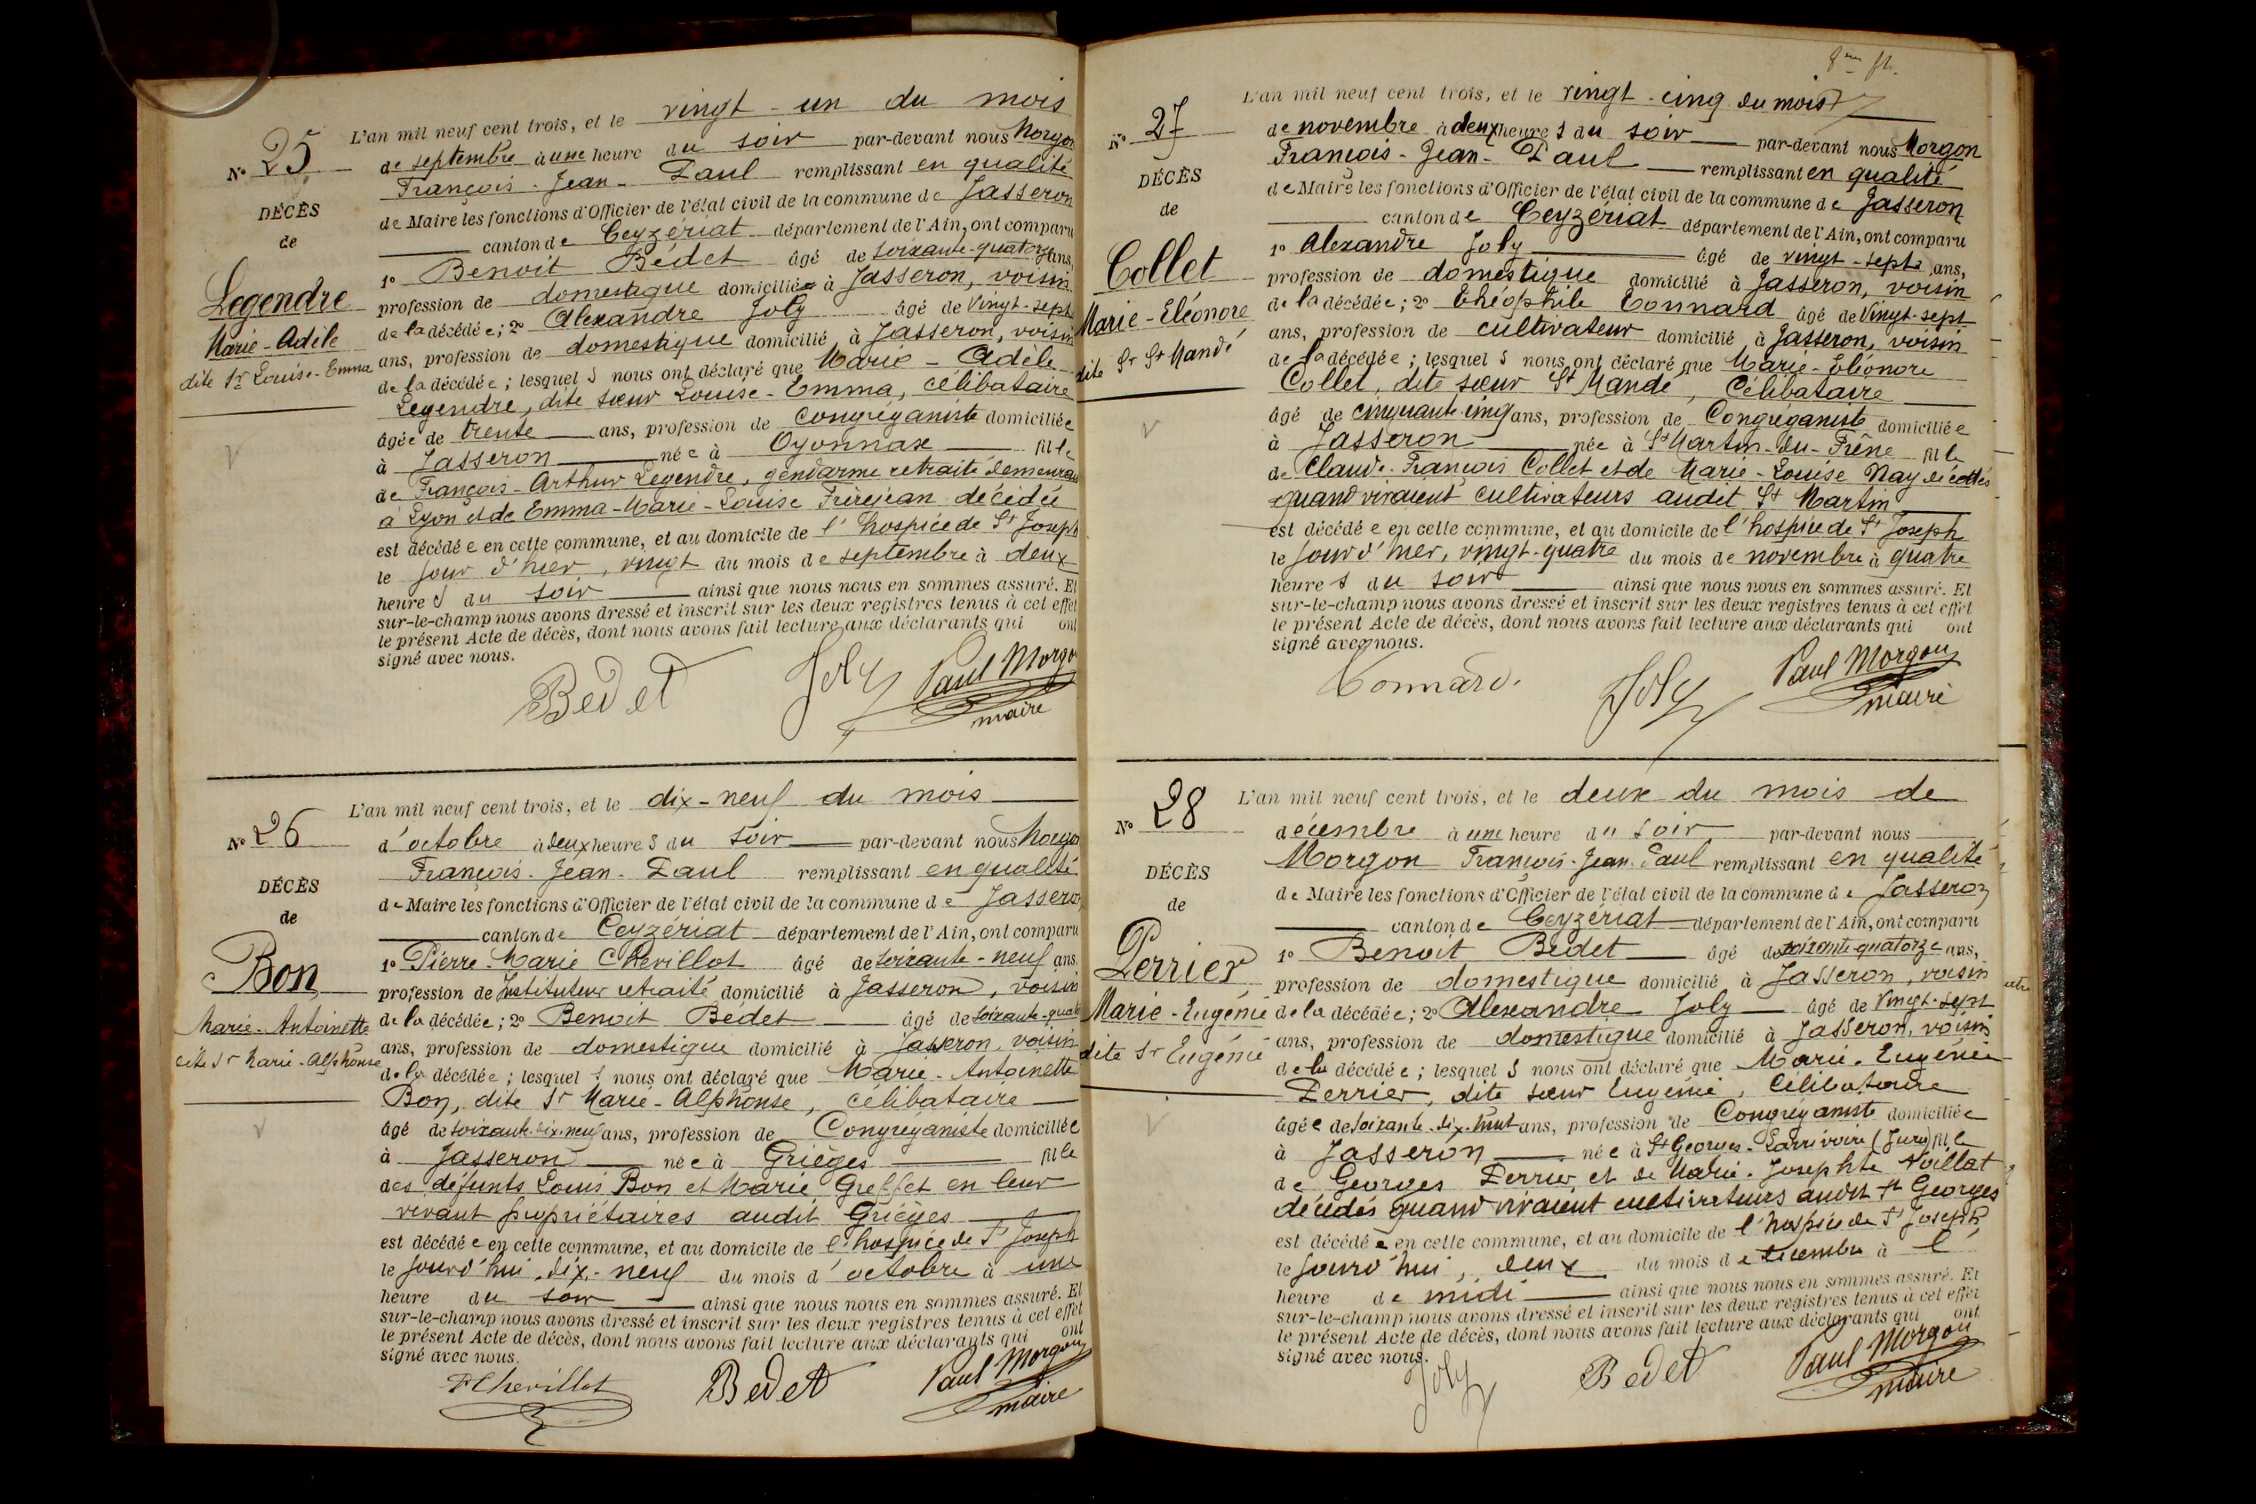 N° 25
DÉCÈS
de
Legendre
Marie-Adèle
dite Sr Louise-Emma
L'an mil neuf cent trois, et le vingt-un du mois
de septembre à une heure du soir par-devant nous Morgon
François-Jean-Paul remplissant en qualité
de Maire les fonctions d'Officier de l'état civil de la commune de Jasseron
canton de Ceyzériat département de l'Ain, ont comparu
1° Benoit Bedet âgé de soixante-quatorze ans,
profession de domestique domicilié à Jasseron, voisin
de la décédée; 2° Alexandre Joly âgé de vingt-sept
ans, profession de domestique domicilié à Jasseron, voisin
de la décédée; lesquels nous ont déclaré que Marie-Adèle
Legendre, dite sœur Louise-Emma, célibataire
âgée de trente ans, profession de Congréganiste domiciliée
à Jasseron née à Oyonnax fille
de François-Arthur Legendre, gendarme retraité demeurant
à Lyon et de Emma-Marie-Louise Frèrejean décédée
est décédée en cette commune, et au domicile de l'hospice de St Joseph
le jour d'hier, vingt du mois de septembre à deux
heures du soir ainsi que nous nous en sommes assuré. Et
sur-le-champ nous avons dressé et inscrit sur les deux registres tenus à cet effet
le présent Acte de décès, dont nous avons fait lecture aux déclarants qui ont
signé avec nous.
Bedet Joly Paul Morgon
maire
N° 26
DÉCÈS
de
Bon
Marie-Antoinette
dite Sr Marie-Alphonse
L'an mil neuf cent trois, et le dix-neuf du mois
d'octobre à deux heures du soir par-devant nous Morgon
François-Jean-Paul remplissant en qualité
de Maire les fonctions d'Officier de l'état civil de la commune de Jasseron
canton de Ceyzériat département de l'Ain, ont comparu
1° Pierre-Marie Chevillot âgé de soixante-neuf ans
profession de Instituteur retraité domicilié à Jasseron, voisin
de la décédée; 2° Benoit Bedet âgé de soixante-quat
ans, profession de domestique domicilié à Jasseron, voisin
de la décédée; lesquels nous ont déclaré que Marie-Antoinette
Bon, dite Sr Marie-Alphonse, célibataire
âgé de soixante-dix-neuf ans, profession de Congréganiste domiciliée
à Jasseron née à Grièges fille
des défunts Louis Bon et Marie Greffet en leur
vivant propriétaires audit Grièges
est décédée en cette commune, et au domicile de l'hospice de St Joseph
le jourd'hui dix-neuf du mois d'octobre à une
heure du soir ainsi que nous nous en sommes assuré. Et
sur-le-champ nous avons dressé et inscrit sur les deux registres tenus à cet effet
le présent Acte de décès, dont nous avons fait lecture aux déclarants qui ont
signé avec nous.
Chevillot Bedet Paul Morgon
maire
8me fl.
N° 27
DÉCÈS
de
Collet
Marie-Eléonore
dite Sr St Mandé
L'an mil neuf cent trois, et le vingt-cinq du mois
de novembre à deux heures du soir par-devant nous Morgon
François-Jean-Paul remplissant en qualité
de Maire les fonctions d'Officier de l'état civil de la commune de Jasseron
canton de Ceyzériat département de l'Ain, ont comparu
1° Alexandre Joly âgé de vingt-sept ans,
profession de domestique domicilié à Jasseron, voisin
de la décédée; 2° Théophile Connard âgé de vingt-sept
ans, profession de cultivateur domicilié à Jasseron, voisin
de la décédée; lesquels nous ont déclaré que Marie-Eléonore
Collet, dite sœur St Mandé, célibataire
âgé de cinquante-cinq ans, profession de Congréganiste domiciliée
à Jasseron née à St Martin-du-Frêne fille
de Claude-François Collet et de Marie-Louise Nay décédés
quand vivaient cultivateurs audit St Martin
est décédée en cette commune, et au domicile de l'hospice de St Joseph
le jour d'hier, vingt-quatre du mois de novembre à quatre
heures du soir ainsi que nous nous en sommes assuré. Et
sur-le-champ nous avons dressé et inscrit sur les deux registres tenus à cet effet
le présent Acte de décès, dont nous avons fait lecture aux déclarants qui ont
signé avec nous.
Connard. Joly Paul Morgon
maire
N° 28
DÉCÈS
de
Perrier
Marie-Eugénie
dite Sr Eugénie
L'an mil neuf cent trois, et le deux du mois de
décembre à une heure du soir par-devant nous
Morgon François-Jean-Paul remplissant en qualité
de Maire les fonctions d'Officier de l'état civil de la commune de Jasseron
canton de Ceyzériat département de l'Ain, ont comparu
1° Benoit Bedet âgé de soixante-quatorze ans,
profession de domestique domicilié à Jasseron, voisin
de la décédée; 2° Alexandre Joly âgé de vingt-sept
ans, profession de domestique domicilié à Jasseron, voisin
de la décédée; lesquels nous ont déclaré que Marie-Eugénie
Perrier, dite sœur Eugénie, célibataire
âgée de soixante-dix-huit ans, profession de Congréganiste domiciliée
à Jasseron née à St Georges-Larrivoire (Jura) fille
de Georges Perrier et de Marie-Josephte Voillat
décédés quand vivaient cultivateurs audit St Georges
est décédée en cette commune, et au domicile de l'hospice de St Joseph
le jourd'hui, deux du mois de décembre à l'
heure de midi ainsi que nous nous en sommes assuré. Et
sur-le-champ nous avons dressé et inscrit sur les deux registres tenus à cet effet
le présent Acte de décès, dont nous avons fait lecture aux déclarants qui ont
signé avec nous.
Joly Bedet Paul Morgon
maire